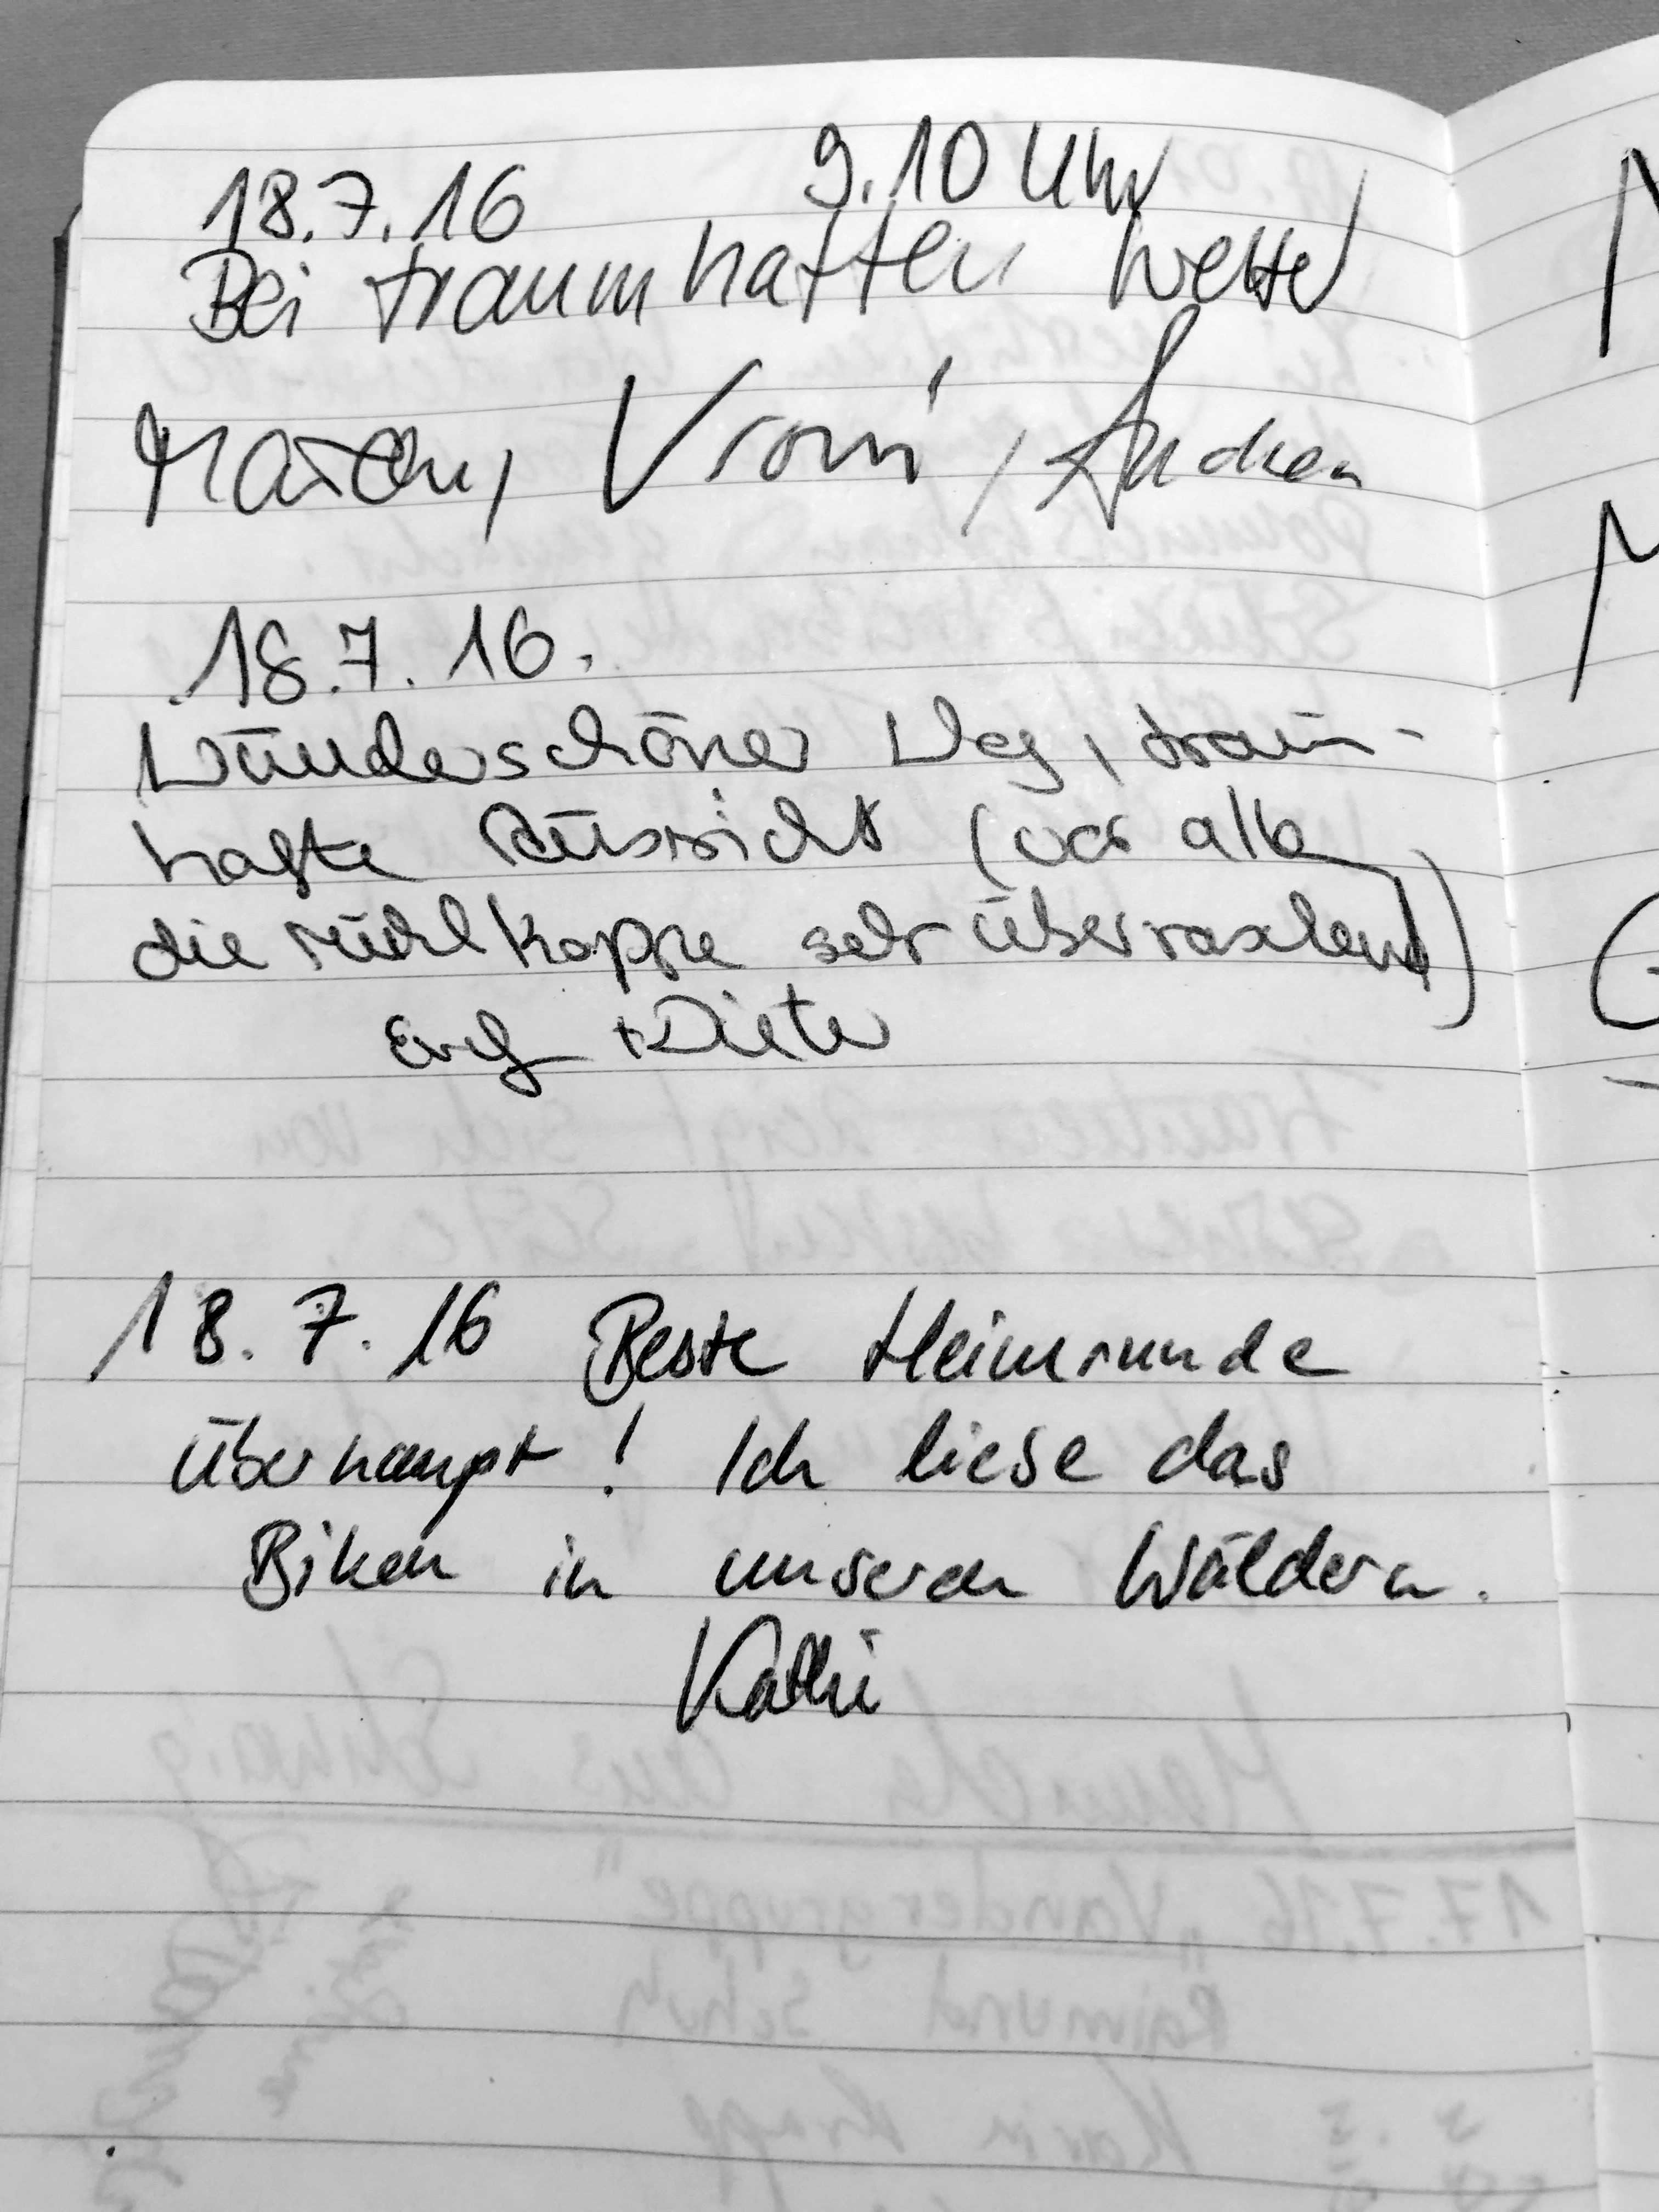 18.7.16 9.10 Uhr
Bei traumhaften Wetter
Vroni, Andrea
18.7.16.
Wunderschöner Weg, traum-
hafte Aussicht (vor allem
die Mühlkoppe sehr überraschend)
+ Dieter
18.7.16 Beste Heimrunde
überhaupt! Ich liebe das
Biken in unseren Wäldern.
Kathi